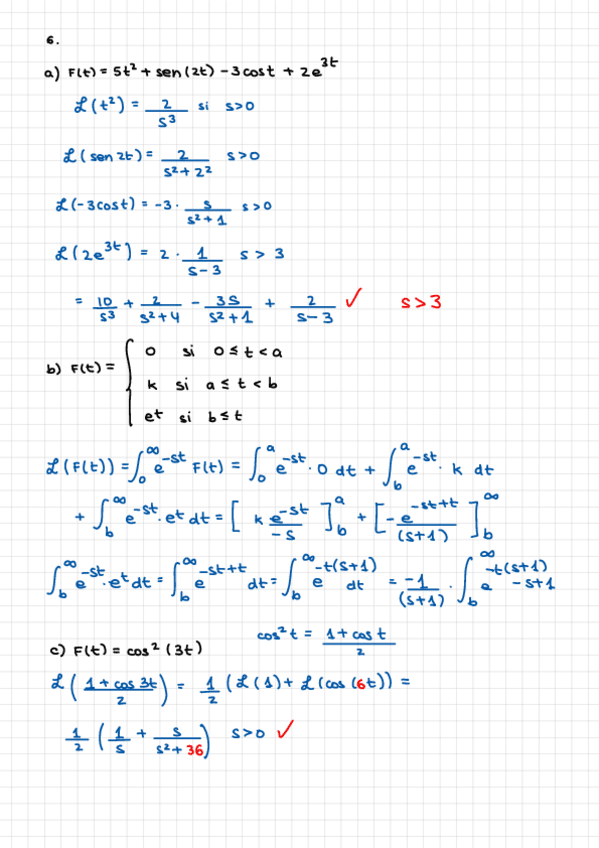 6.
a) F(t) = 5t² + sen(2t) - 3cost + 2e^{3t}
ℒ(t²) = 2/s³ si s>0
ℒ(sen 2t) = 2/(s²+2²) s>0
ℒ(-3cost) = -3 · s/(s²+1) s>0
ℒ(2e^{3t}) = 2 · 1/(s-3) s > 3
= 10/s³ + 2/(s²+4) - 3s/(s²+1) + 2/(s-3) ✓ s>3
b) F(t) = {
0 si 0 ≤ t < a
k si a ≤ t < b
et si b ≤ t
ℒ(F(t)) = ∫₀^∞ e^{-st} F(t) = ∫₀^a e^{-st} · 0 dt + ∫_b^a e^{-st} · k dt
+ ∫_b^∞ e^{-st} · et dt = [k e^{-st}/-s]_b^a + [-e^{-st+t}/(s+1)]_b^∞
∫_b^∞ e^{-st} · e^t dt = ∫_b^∞ e^{-st+t} dt = ∫_b^∞ e^{-t(s+1)} dt = -1/(s+1) · ∫_b^∞ e^{-t(s+1)} -s+1
c) F(t) = cos²(3t) cos²t = (1+cos t)/2
ℒ((1+cos 3t)/2) = 1/2 (ℒ(1) + ℒ(cos(6t)) =
1/2 (1/s + s/(s²+36)) s>0 ✓